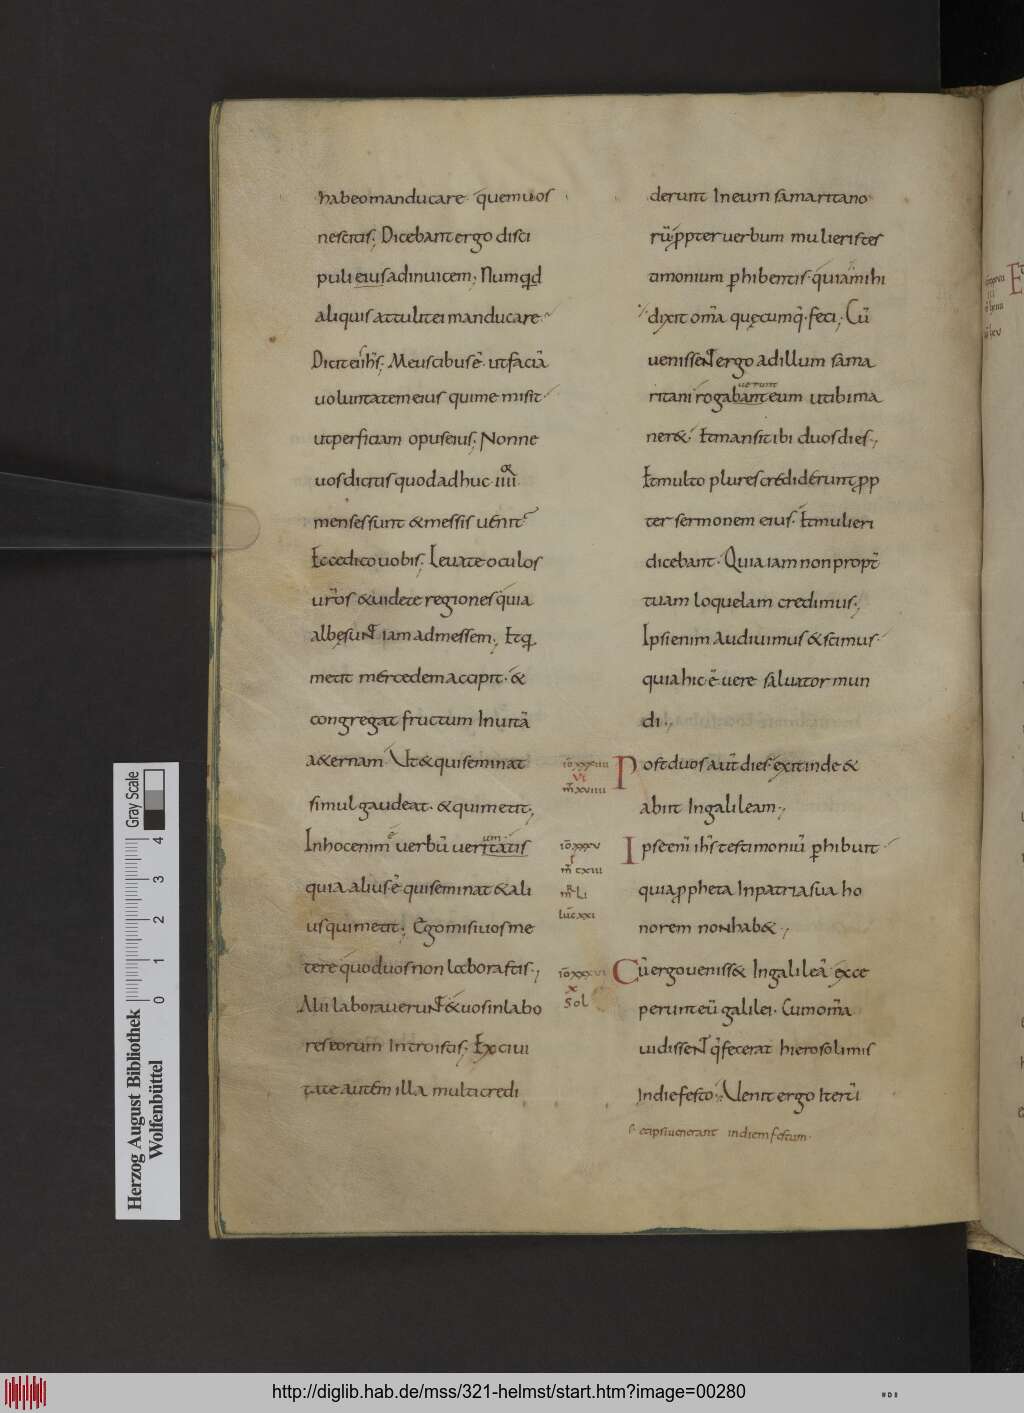 habeo manducare quem uos
nescitis; Dicebant ergo disci
puli eius adinuicem; Numqđ
aliquis attulit ei manducare
Dicit eis ih̅s; Meus cibus ē. ut faciā
uoluntatem eius qui me misit
ut perficiam opus eius; Nonne
uos dicitis quod adhuc iiii
menses sunt & messis uenit
Ecce dico uobis; Leuate oculos
ur̅os & uidete regiones quia
albę sunt iam ad messem; Et q
metit mercedem accipit. &
congregat fructum In uitā
a&ernam Ut & qui seminat
simul gaudeat. & qui metit;
In hoc enim ē uerbū ueritatis
um
quia alius ē qui seminat & ali
us qui metit; Ego misi uos me
tere quod uos non laborastis;
Alii laborauerunt & uos in labo
res eorum Introistis; Ex ciui
tate autem illa multi credi
derunt In eum samaritano
rū ꝓpter uerbum mulieris tes
timonium ꝑhibentis. quia mihi
dixit om̅a quęcumq̅. feci; Cū
uenissent ergo ad illum sama
uerunt
ritani rogabant eum ut ibi ma
ner& Et mansit ibi duos dies;
Et multo plures crediderunt ꝓp
ter sermonem eius. Et mulieri
dicebant. Quia iam non propt̅
tuam loquelam credimus;
Ipsi enim audiuimus & scimus
quia hic ē uere saluator mun
di;
io̅ xxxiiii
vi
m̅ xviiii
Post duos aut̅ dies exit inde &
abiit In galileam;
io̅ xxxv
i
m̅ cxlii
m̅r li
luc̅ xxi
Ipse eni̅ ih̅s testimoniū ꝑhibuit
quia ꝓpheta In patria sua ho
norem non hab&;
io̅ xxxvi
x
Sol
Cū ergo ueniss& In galileā exce
perunt eū galilei. Cum om̅a
uidissent q̅ fecerat hierosolimis
In die festo; Uenit ergo Iterū
s. et ipsi uenerant in diem festum.
Herzog August Bibliothek
Wolfenbüttel
0 1 2 3 4
Gray Scale
http://diglib.hab.de/mss/321-helmst/start.htm?image=00280